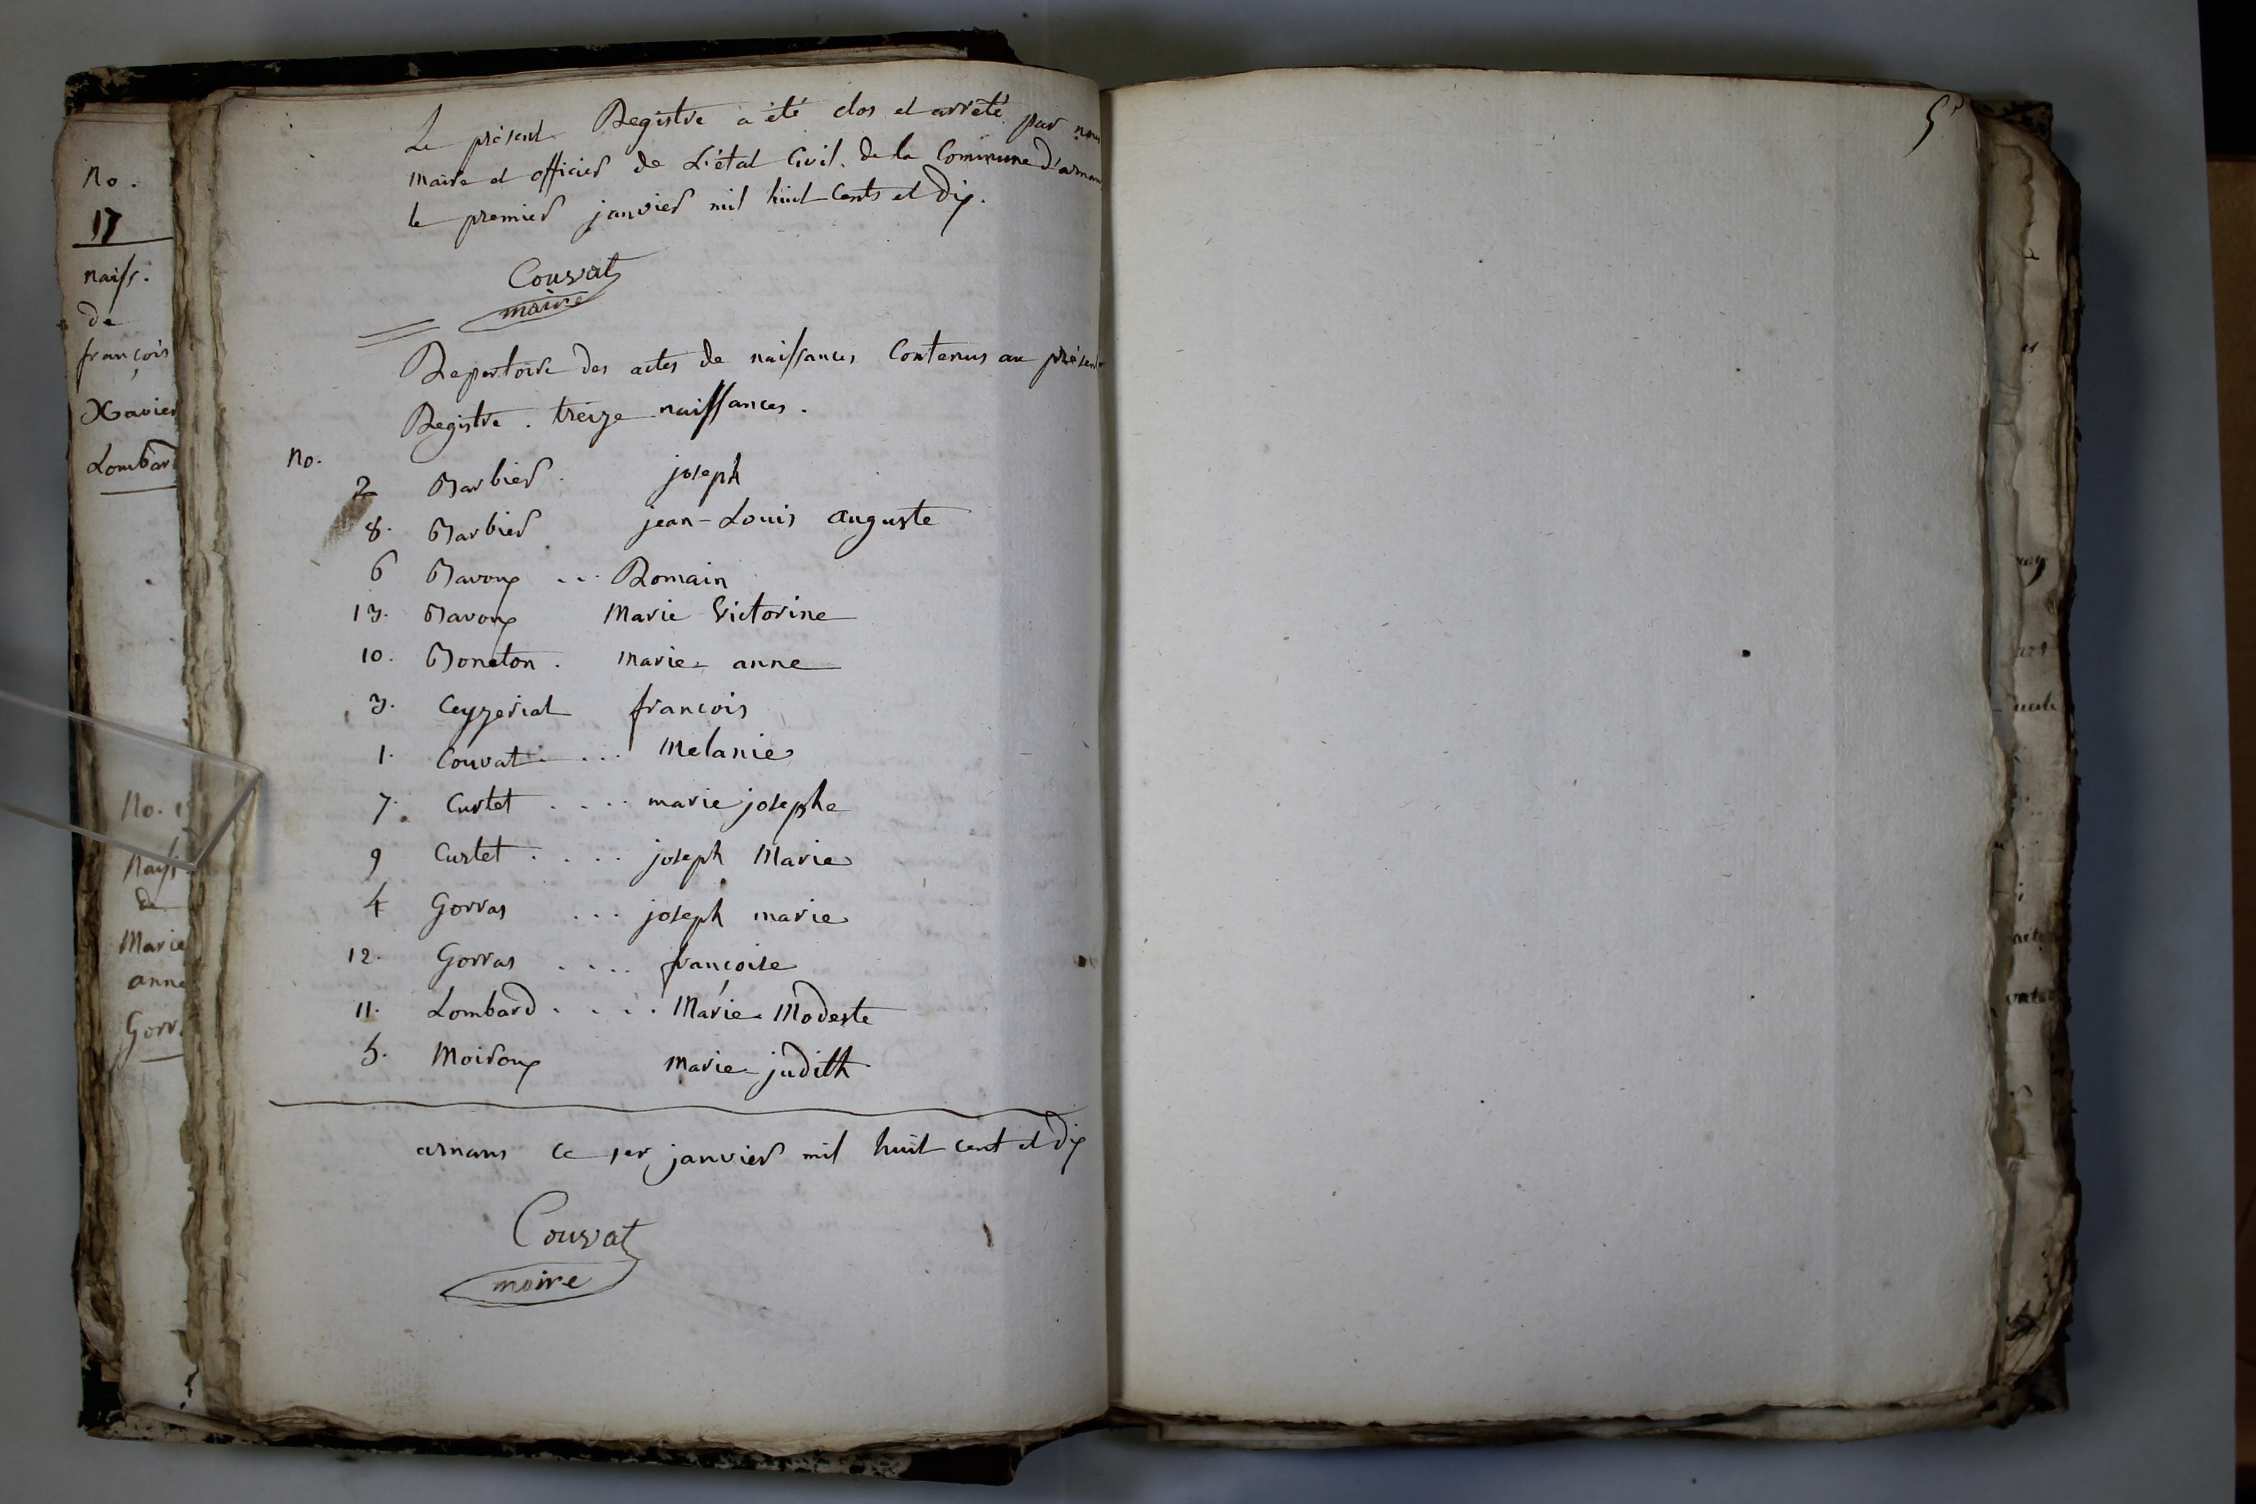 No.
17
naiss.
de
françois
Xavier
Lombar
No.
naiss
de
Marie
anne
Gorr
Le présent Registre a été clos et arrêté par nous
maire et officier de L'état Civil de la Commune d'arnan
le premier janvier mil huit Cents et dix.
Couvat
maire
Repertoire des actes de naissances Contenus au présent
Registre. treize naissances.
No.
2 Barbier. joseph
8. Barbier jean-Louis auguste
6 Bavoux ... Romain
13. Bavoux Marie Victorine
10. Boneton. marie anne
3. Ceyzeriat francois
1. Couvat .... Melanie
7. Curtet .... marie josephe
9 Curtet .... joseph Marie
4 Gorras ... joseph marie
12. Gorras .... françoise
11. Lombard .... Marie Modeste
5. Moiroux marie judith
arnans ce 1er janvier mil huit cent et dix
Couvat
maire